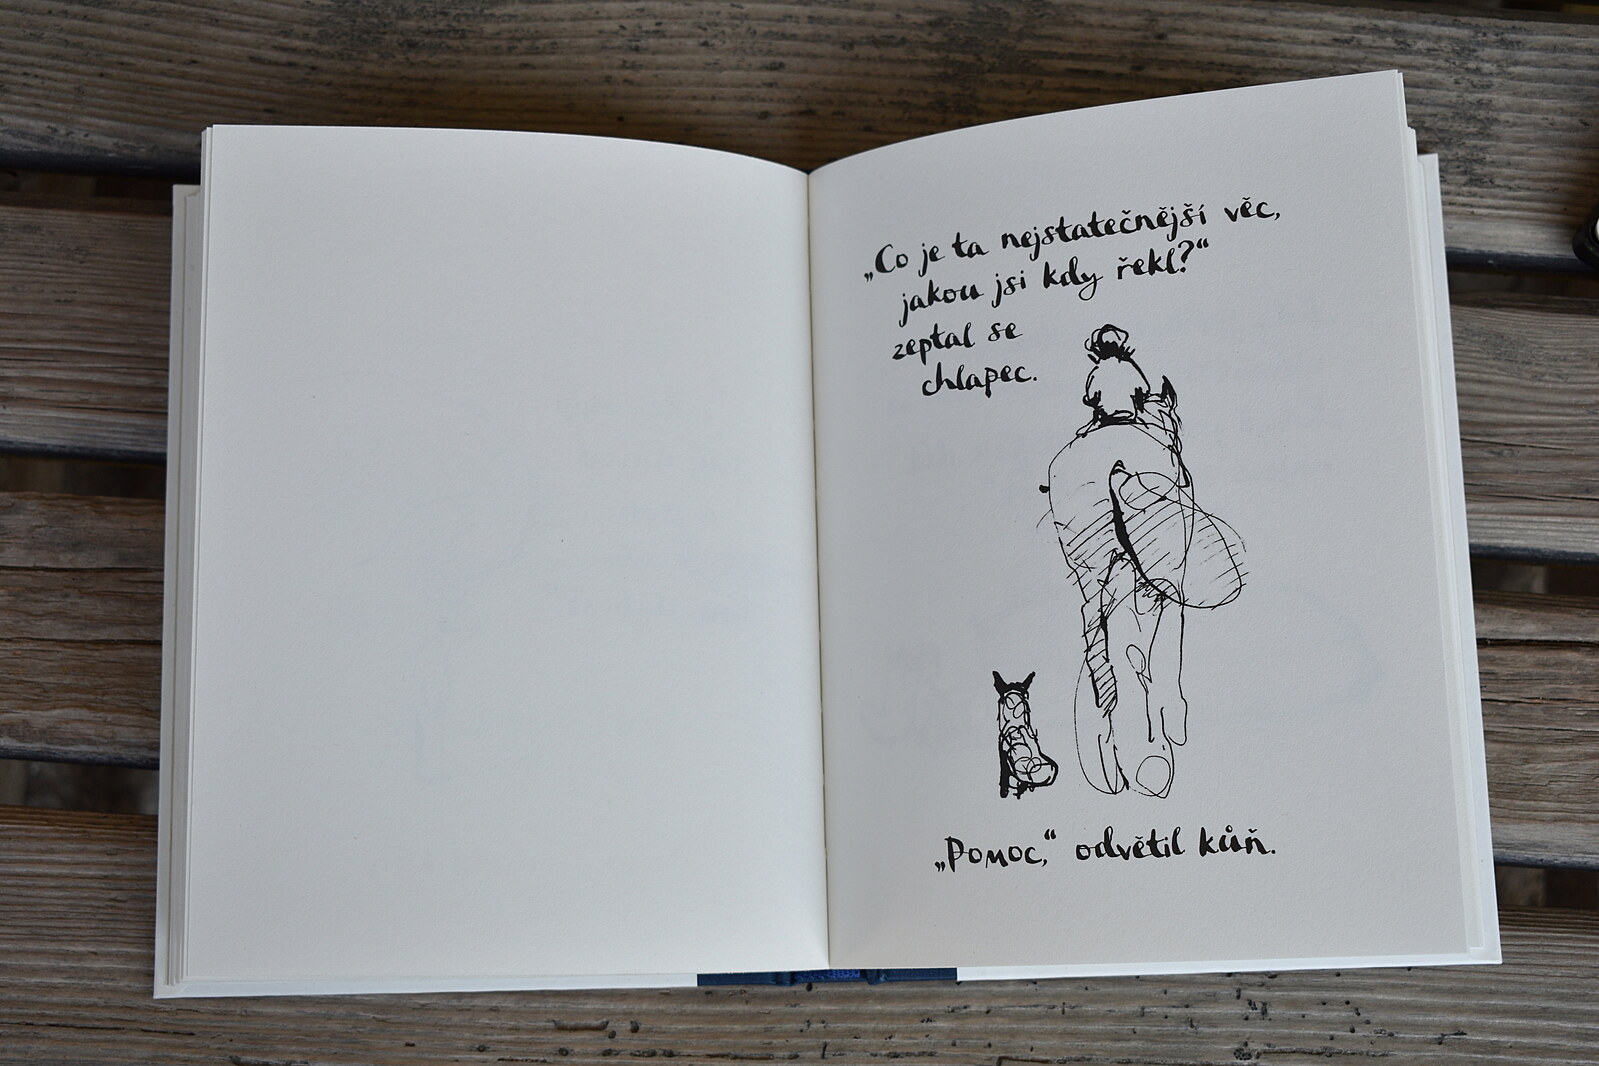 „Co je ta nejstatečnější věc,
jakou jsi kdy řekl?“
zeptal se
chlapec.
„Pomoc,“ odvětil kůň.